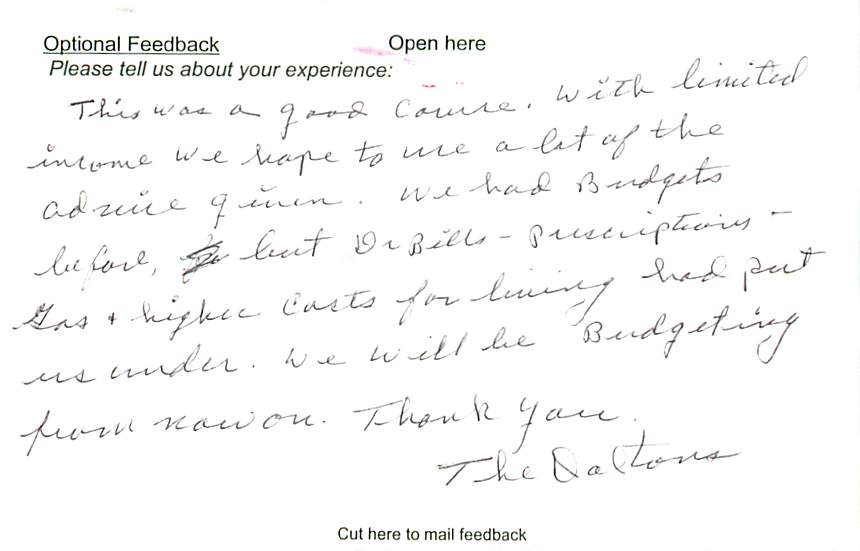 Optional Feedback Open here
Please tell us about your experience:
This was a good Course. With limited
income we hope to use a lot of the
advice given. We had Budgets
before, but Dr Bills - Prescriptions -
Gas + higher Costs for living had put
us under. We will be Budgeting
from now on. Thank You.
The Daltons
Cut here to mail feedback